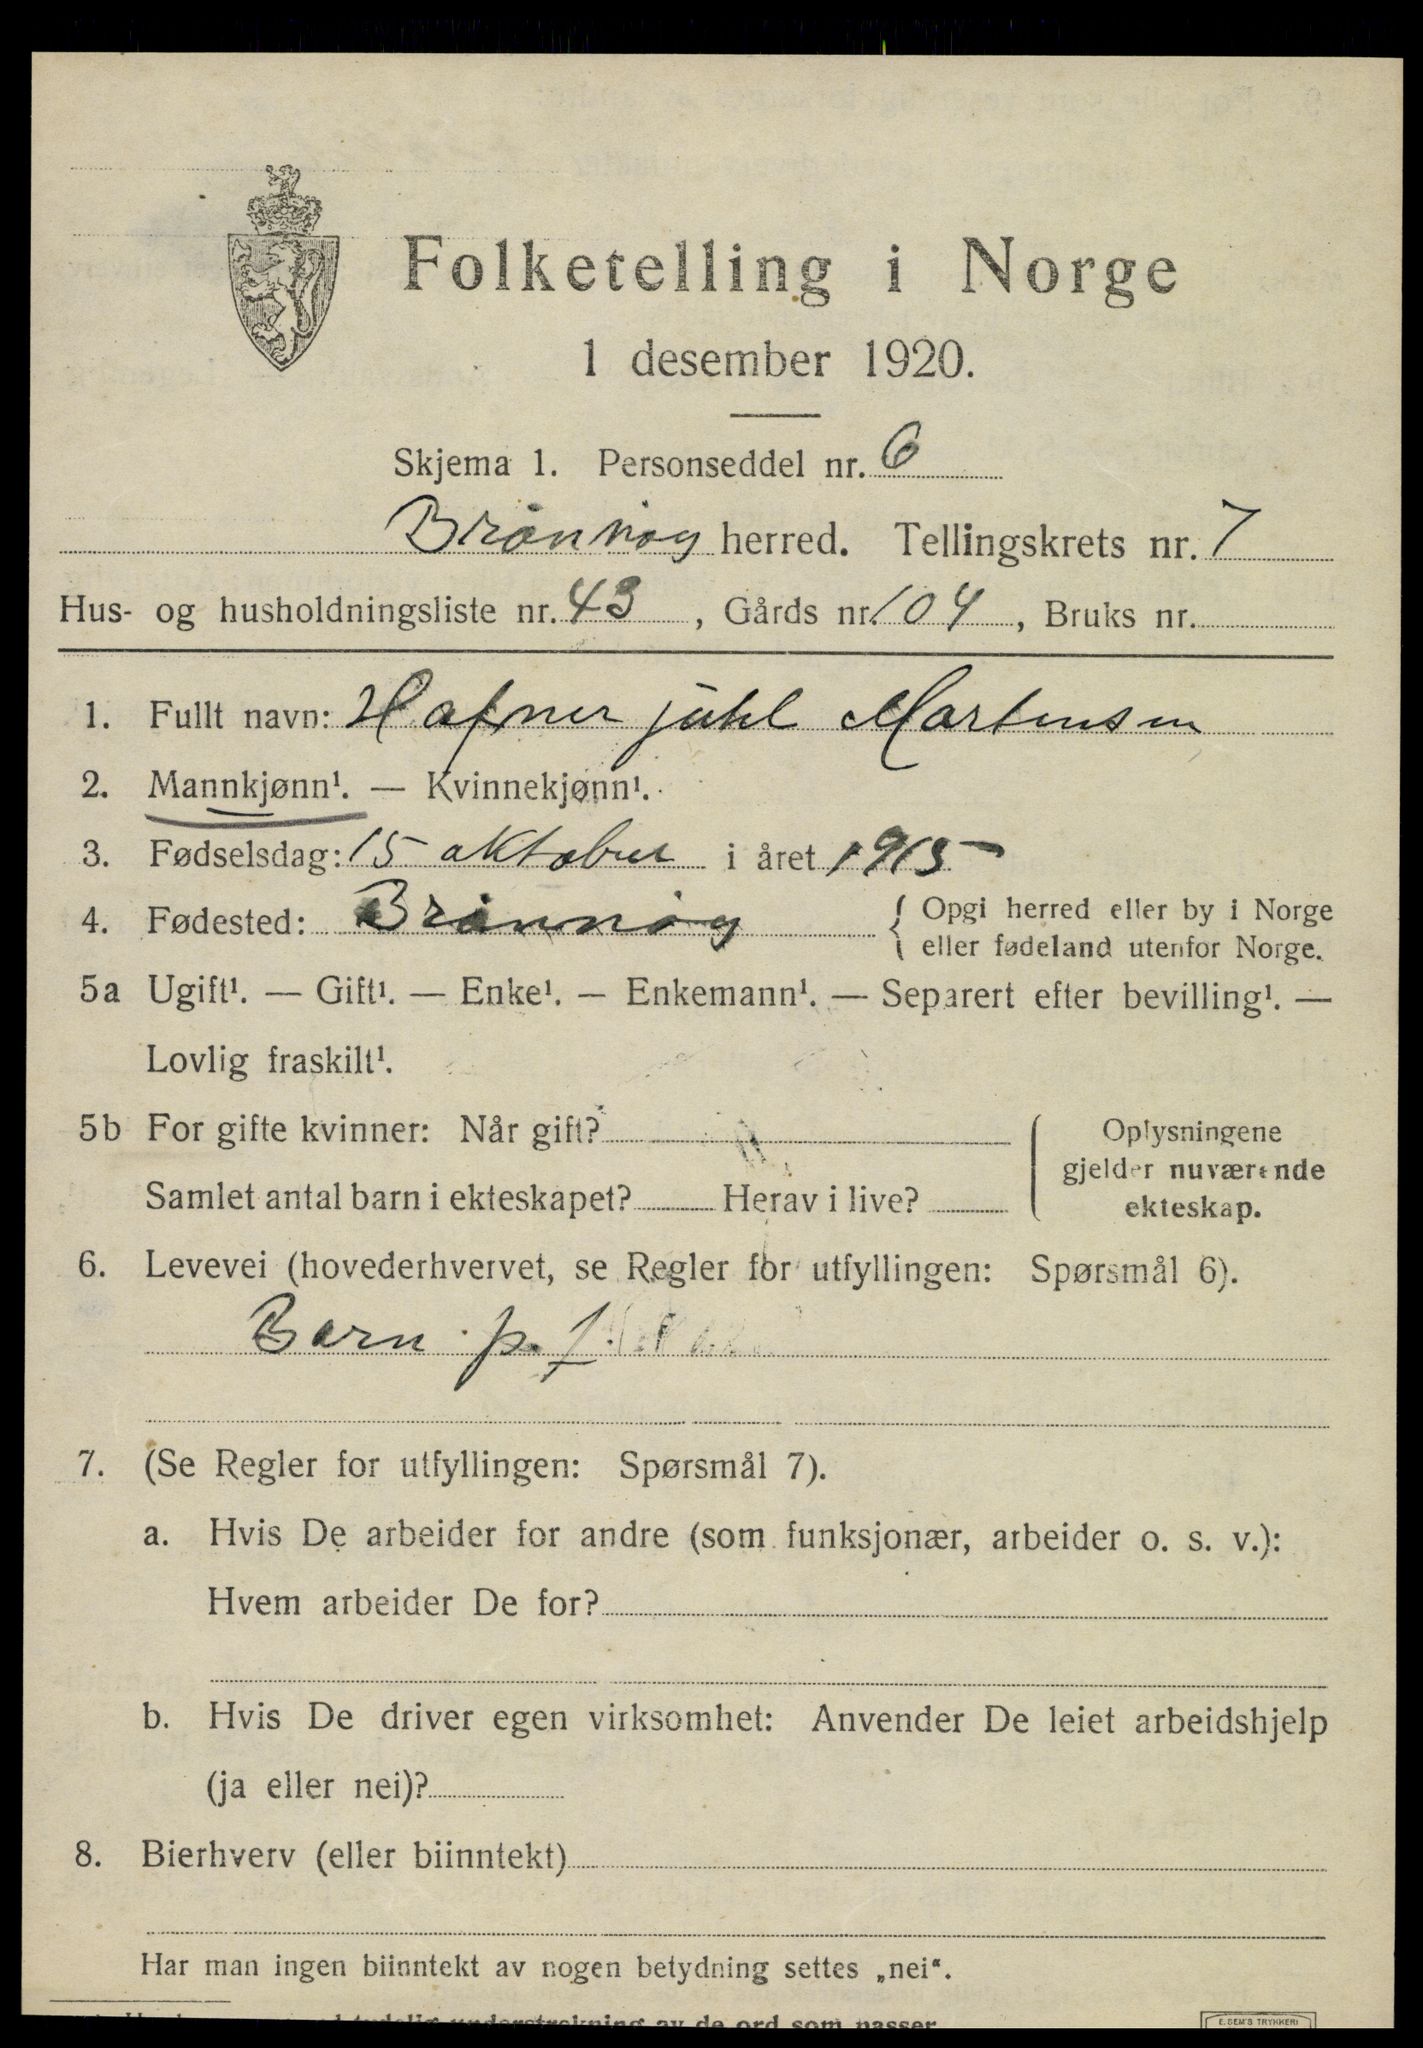 Folketelling i Norge
1 desember 1920.
Skjema 1. Personseddel nr. 6
Brønnøy herred. Tellingskrets nr. 7
Hus- og husholdningsliste nr. 43, Gårds nr. 104, Bruks nr.
1. Fullt navn: Hafner juhl Martensen
2. Mannkjønn¹. — Kvinnekjønn¹.
3. Fødselsdag: 15 oktober i året 1915
4. Fødested: Brønnøy { Opgi herred eller by i Norge
eller fødeland utenfor Norge.
5a Ugift¹. — Gift¹. — Enke¹. — Enkemann¹. — Separert efter bevilling¹. —
Lovlig fraskilt¹.
5b For gifte kvinner: Når gift?
Samlet antal barn i ekteskapet? Herav i live?
Oplysningene
gjelder nuværende
ekteskap.
6. Levevei (hovederhvervet, se Regler for utfyllingen: Spørsmål 6).
Barn p. f.
7. (Se Regler for utfyllingen: Spørsmål 7).
a. Hvis De arbeider for andre (som funksjonær, arbeider o. s. v.):
Hvem arbeider De for?
b. Hvis De driver egen virksomhet: Anvender De leiet arbeidshjelp
(ja eller nei)?
8. Bierhverv (eller biinntekt)
Har man ingen biinntekt av nogen betydning settes „nei“.
tydelig understrekning av de ord som passer
E. SEM'S TRYKKERI